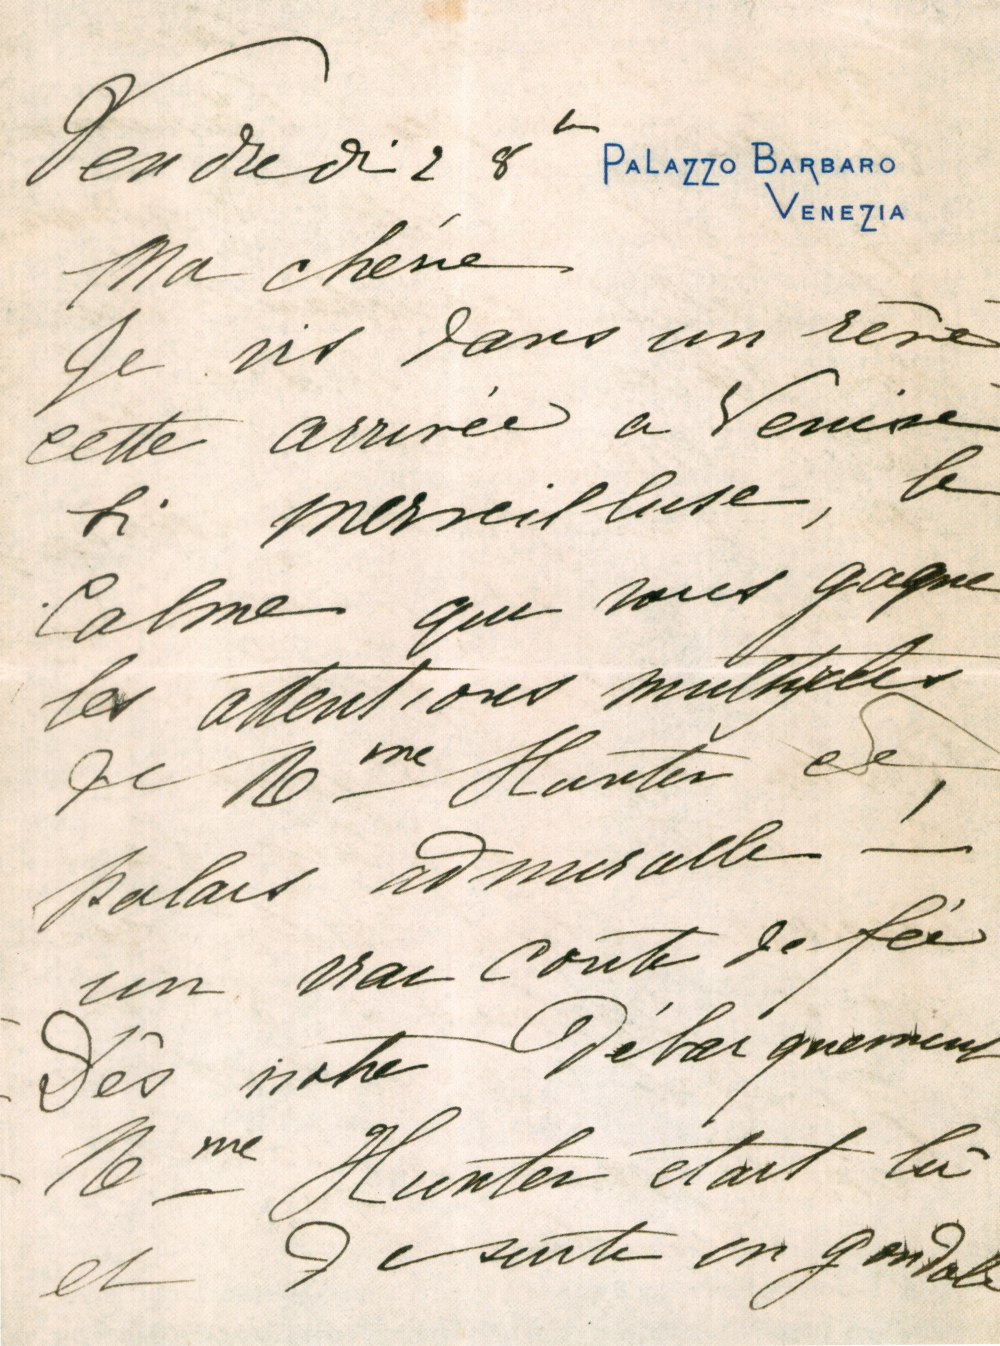 Vendredi 2 8bre
PALAZZO BARBARO
VENEZIA
Ma chérie
Je vis dans un rêve
cette arrivée a Venise
si merveilleuse, le
Calme qui vous gagne
les attentions multiples
de Mme Hunter et,
palais admirable —
un vrai conte de fée
Dès notre débarquement
Mme Hunter était là
et de suite en gondole